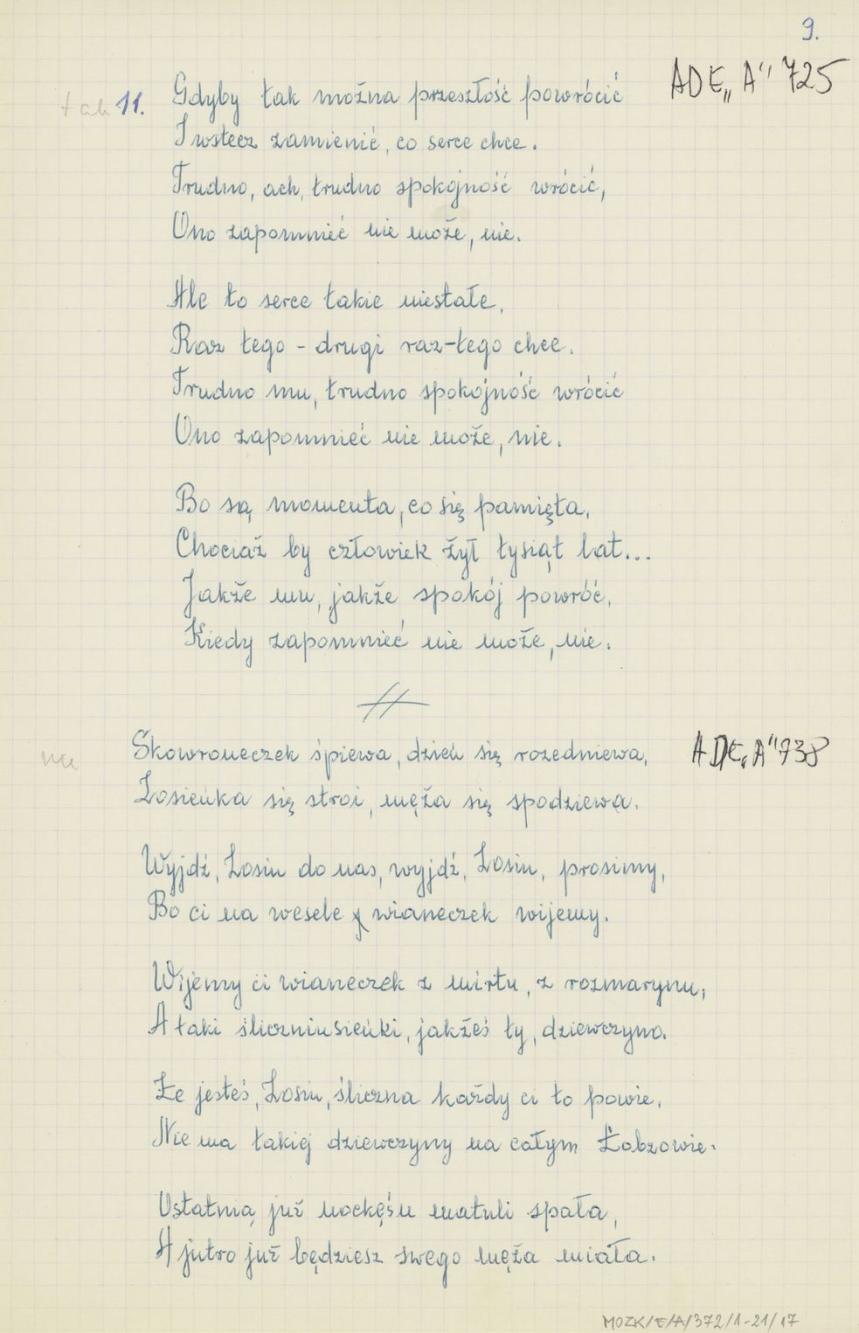 9.
ADE„A" 725
tak 11. Gdyby tak można przeszłość powrócić
I wstecz zamienić, co serce chce.
Trudno, ach, trudno spokojność wrócić,
Ono zapomnieć nie może, nie.
Ale to serce takie niestałe,
Raz tego - drugi raz-tego chce.
Trudno mu, trudno spokojność wrócić
Ono zapomnieć nie może, nie.
Bo są momenta, co się pamięta,
Chociaż by człowiek żył tysiąt lat...
Jakże mu, jakże spokój powróć,
Kiedy zapomnieć nie może, nie.
ADE„A" 738
Skowroneczek śpiewa, dzień się rozedniewa,
Zosieńka się stroi, męża się spodziewa.
Wyjdź, Zosiu do nas, wyjdź, Zosiu, prosimy,
Bo ci na wesele wianeczek wijemy.
Wijemy ci wianeczek z mirtu, z rozmarynu,
A taki śliczniusieńki, jakżeś ty, dziewczyno.
Że jesteś, Zosiu, śliczna każdy ci to powie,
Nie ma takiej dziewczyny na całym Łobzowie.
Ostatnią już nockęśu matuli spała,
A jutro już będziesz swego męża miała.
MOZK/E/A/372/1-21/17